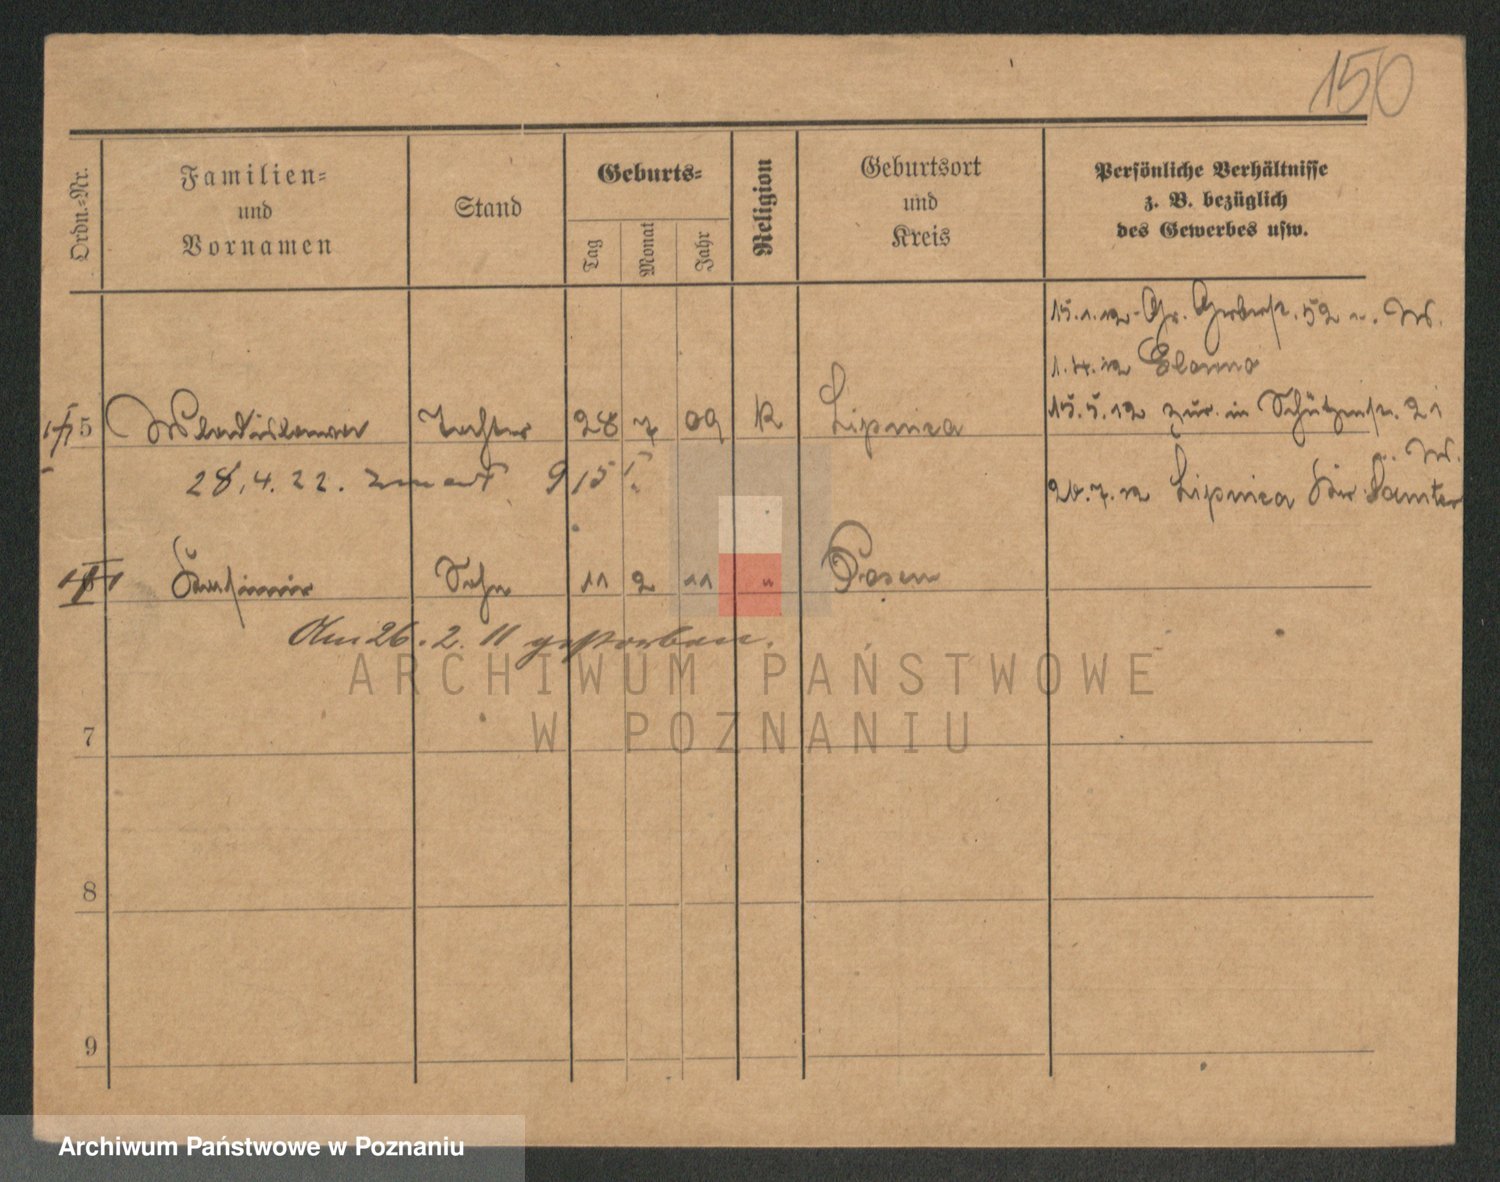 150
Ordn.=Nr.
Familien=
und
Vornamen
Stand
Geburts=
Tag
Monat
Jahr
Religion
Geburtsort
und
Kreis
Persönliche Verhältnisse
z. B. bezüglich
des Gewerbes usw.
15.1.12 Gr. Gerberst. 52
1.4.12
5 Wladislawa Tochter 28 7 09 K Lipnica
15.5.12 zur. in Schützenstr. 21
28.4.22. 915
20.7.12 Lipnica Kr. Samter
Kasimir Sohn 11 2 11 " Posen
Am 26.2.11 gestorben.
ARCHIWUM PAŃSTWOWE
W POZNANIU
7
8
9
Archiwum Państwowe w Poznaniu